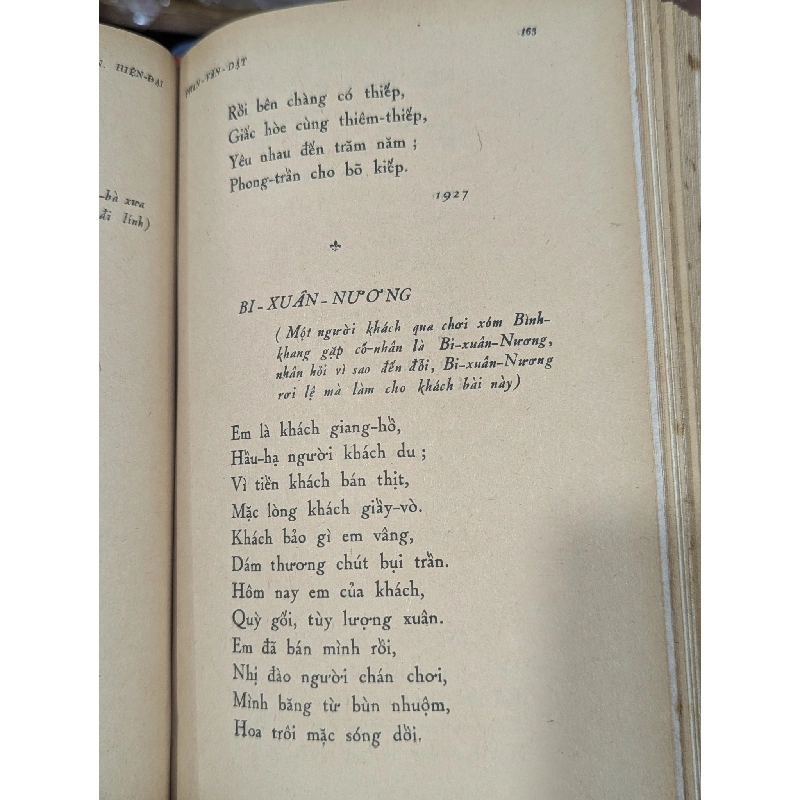 N. HIỆN-ĐẠI
-bà xưa
đi lính)
PHAN-VĂN-DẬT
163
Rồi bên chàng có thiếp,
Giấc hòe cùng thiêm-thiếp,
Yêu nhau đến trăm năm ;
Phong-trần cho bõ kiếp.
1927
BI-XUÂN-NƯƠNG
(Một người khách qua chơi xóm Bình-
khang gặp cố-nhân là Bi-xuân-Nương,
nhân hỏi vì sao đến đỗi, Bi-xuân-Nương
rơi lệ mà làm cho khách bài này)
Em là khách giang-hồ,
Hầu-hạ người khách du ;
Vì tiền khách bán thịt,
Mặc lòng khách giầy-vò.
Khách bảo gì em vâng,
Dám thương chút bụi trần.
Hôm nay em của khách,
Quỳ gối, tùy lượng xuân.
Em đã bán mình rồi,
Nhị đào người chán chơi,
Mình băng từ bùn nhuộm,
Hoa trôi mặc sóng dồi.